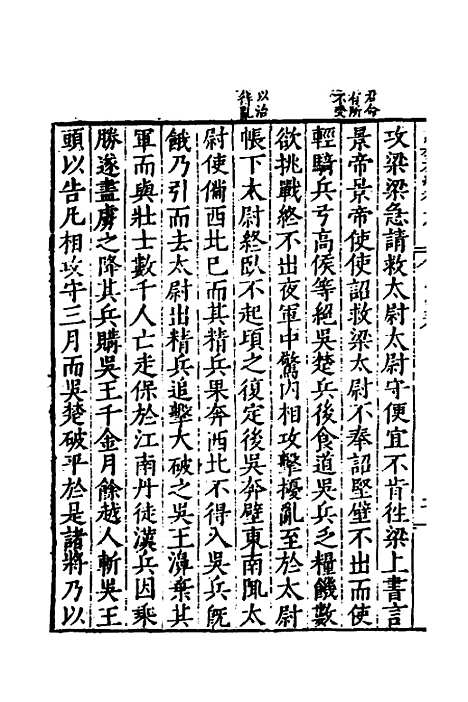 君命
有所
不受
以治
待亂
攻梁梁急請救太尉太尉守便宜不肯徃梁上書言
景帝景帝使使詔救梁太尉不奉詔堅壁不出而使
輕騎兵弓高侯等絕吳楚兵後食道吳兵乏糧饑數
欲挑戰終不出夜軍中驚內相攻擊擾亂至於太尉
帳下太尉終臥不起頃之復定後吳奔壁東南陬太
尉使備西北已而其精兵果奔西北不得入吳兵既
餓乃引而去太尉出精兵追擊大破之吳王濞棄其
軍而與壯士數千人亡走保於江南丹徒漢兵因乘
勝遂盡虜之降其兵購吳王千金月餘越人斬吳王
頭以告凡相攻守三月而吳楚破平於是諸將乃以